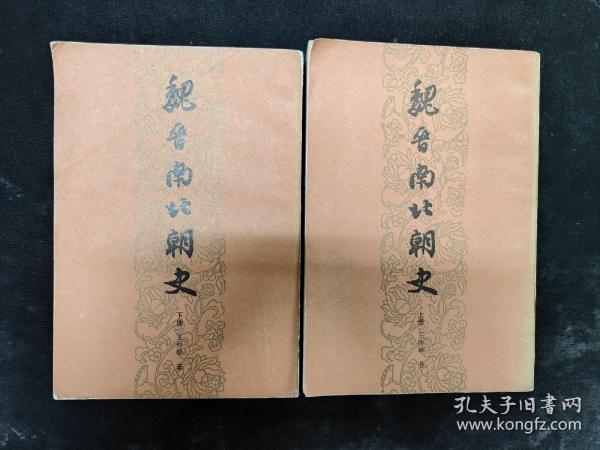 魏晋南北朝史
下册 王仲荦 著
魏晋南北朝史
上册 王仲荦 著
孔夫子旧书网
www.kongfz.com